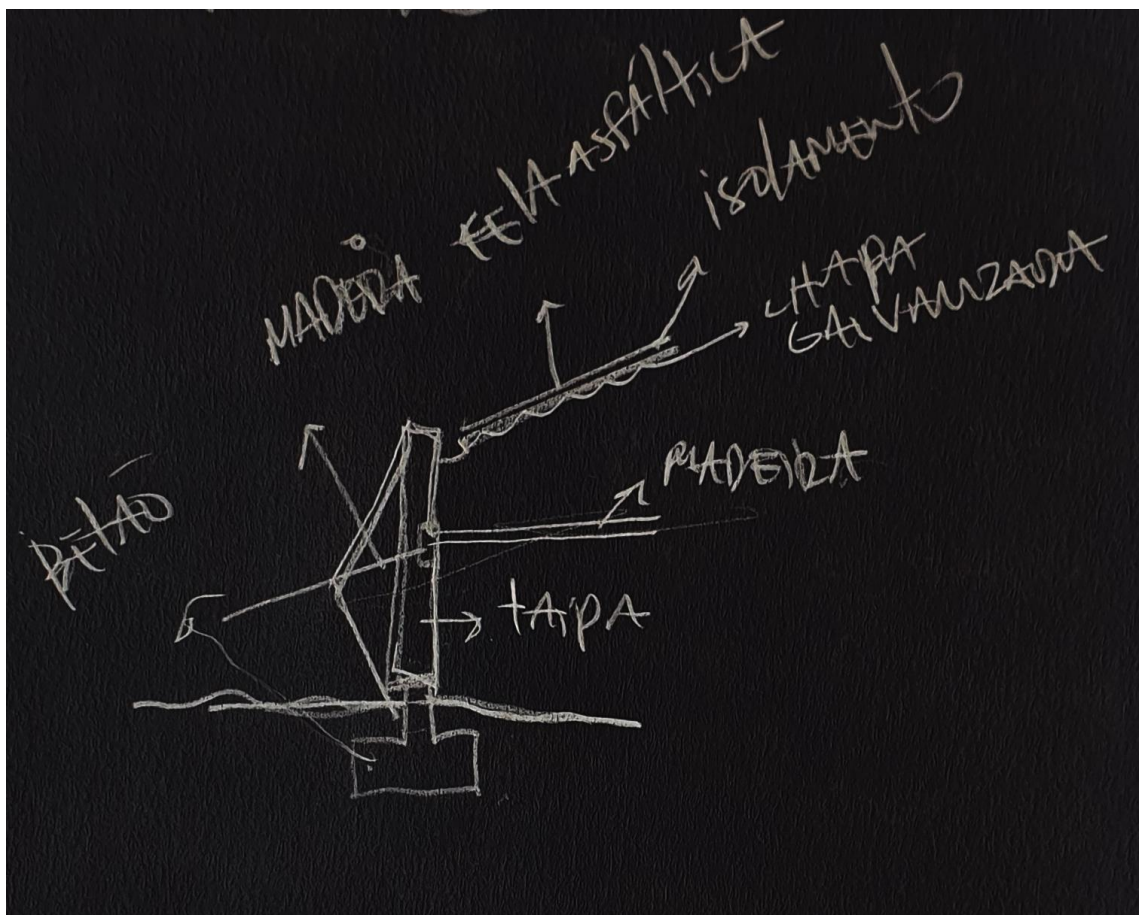 MADEIRA
TELA ASFÁLTICA
isolamento
CHAPA
GALVANIZADA
MADEIRA
BETÃO
tAipA